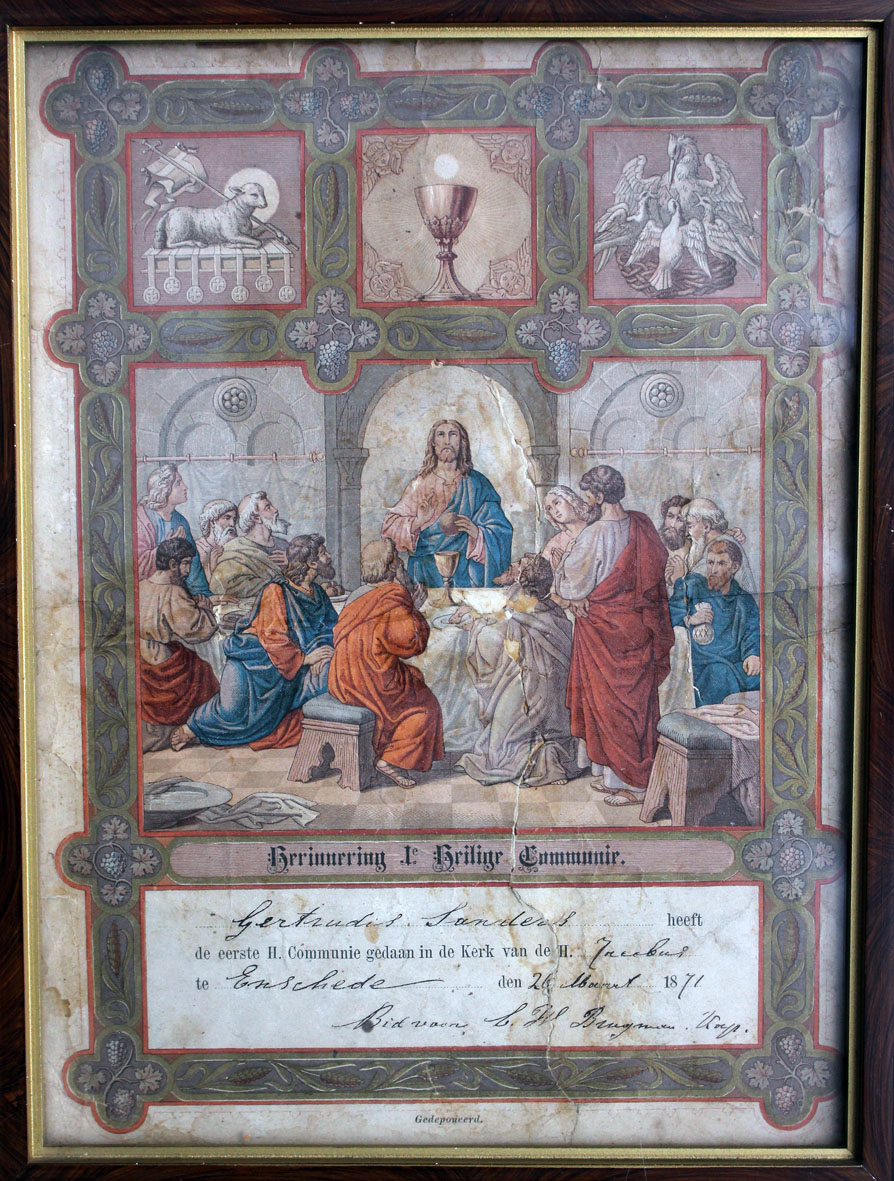 Herinnering 1e Heilige Communie.
Gertrudis Sanders heeft
de eerste H. Communie gedaan in de Kerk van de H. Jacobus
te Enschede den 26 Maart 1871
Bid voor C W Brugman. Kap.
Gedeponeerd.